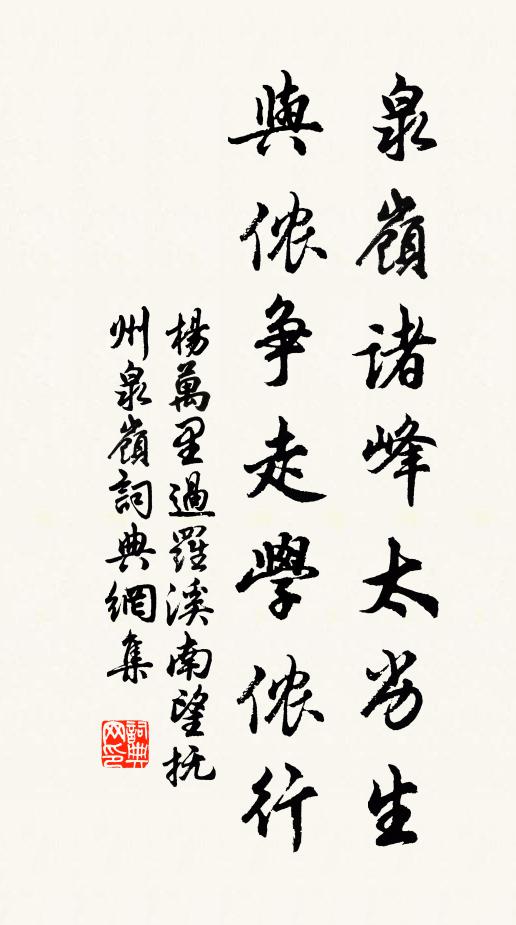 泉嶺諸峰太劣生
與侬争走學侬行
楊萬里過羅溪南望抚
州泉嶺詞典網集
詞典网印